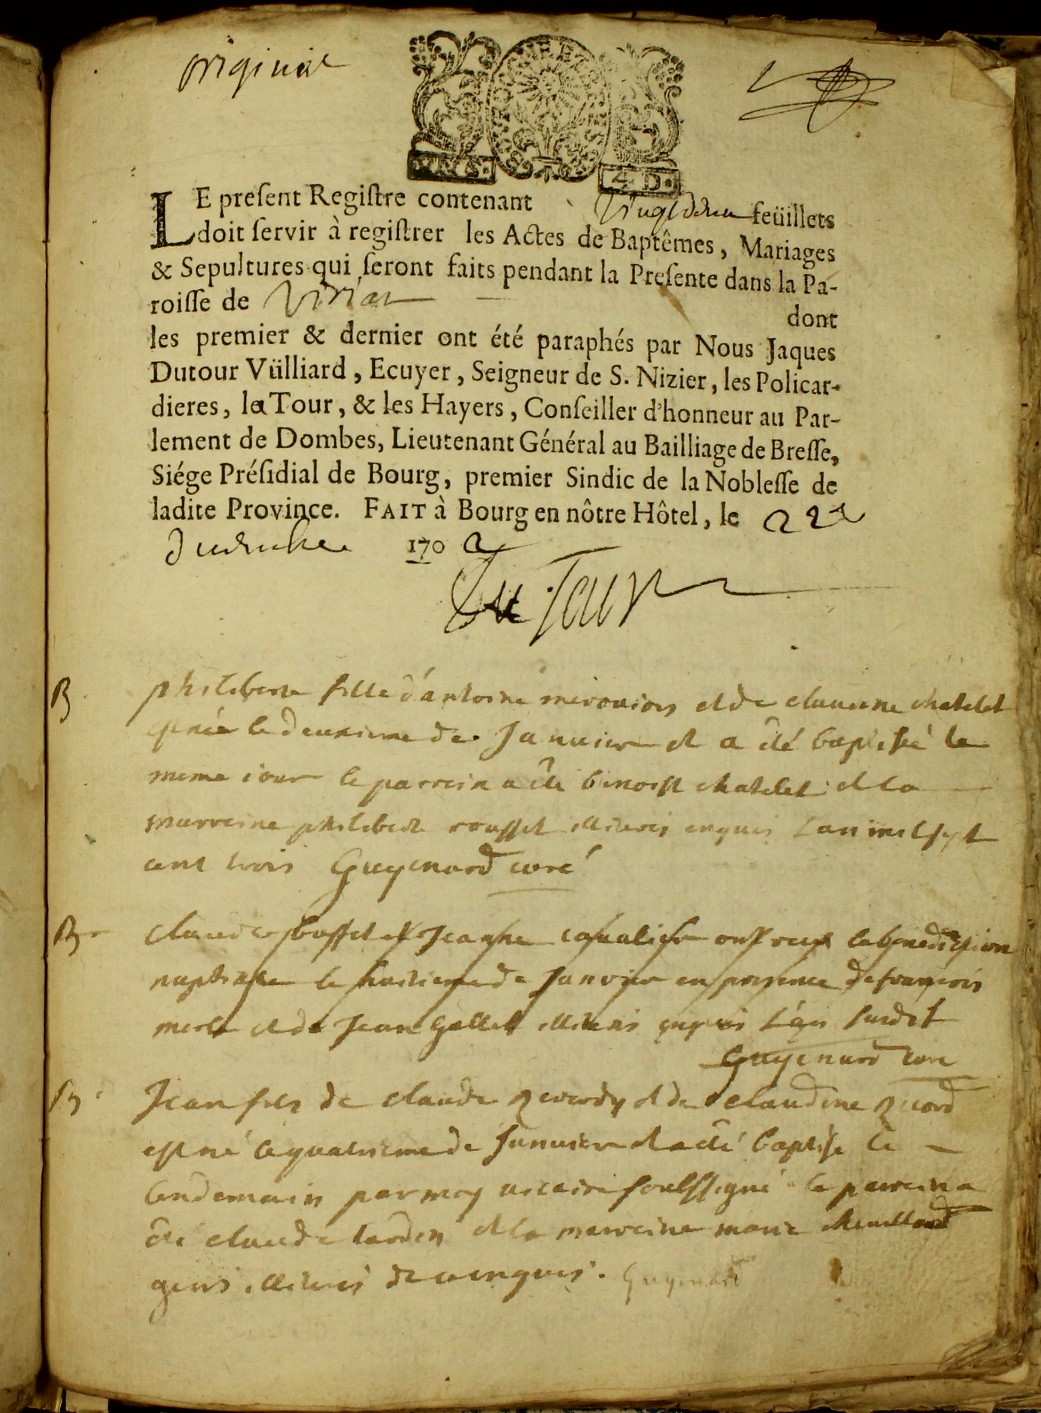 original
LE preſent Regiſtre contenant vingt deux feüillets
doit ſervir à regiſtrer les Actes de Baptêmes, Mariages
& Sepultures qui ſeront faits pendant la Preſente dans la Pa-
roiſſe de Viriat dont
les premier & dernier ont été paraphés par Nous Jaques
Dutour Vülliard, Ecuyer, Seigneur de S. Nizier, les Policar-
dieres, la Tour, & les Hayers, Conſeiller d'honneur au Par-
lement de Dombes, Lieutenant Général au Bailliage de Breſſe,
Siége Préſidial de Bourg, premier Sindic de la Nobleſſe de
ladite Province. FAIT à Bourg en nôtre Hôtel, le 22
1702
Du Tour
B philiberte fille d'antoine et de claudine chatelet
est née le deuxieme de Januier et a été baptisée le
meme iour le parrein a été benoist chatelet et la
marreine philiberte rousset illiteris enquis l'an mil sept
cent trois Guyenard curé
claude et Jeanne ont receu la benediction
nuptiale le huitieme de Januier en presence de francois
merle et de Jean Gallet illiteris enquis l'an susdit
Guyenard curé
B Jean fils de claude et de claudine
est né le quatrieme de Januier et a été baptisé le
lendemain par moy vicaire soubssigné le parrein a
été claude et la marreine marie
illiteris de ce enquis. Guyenard